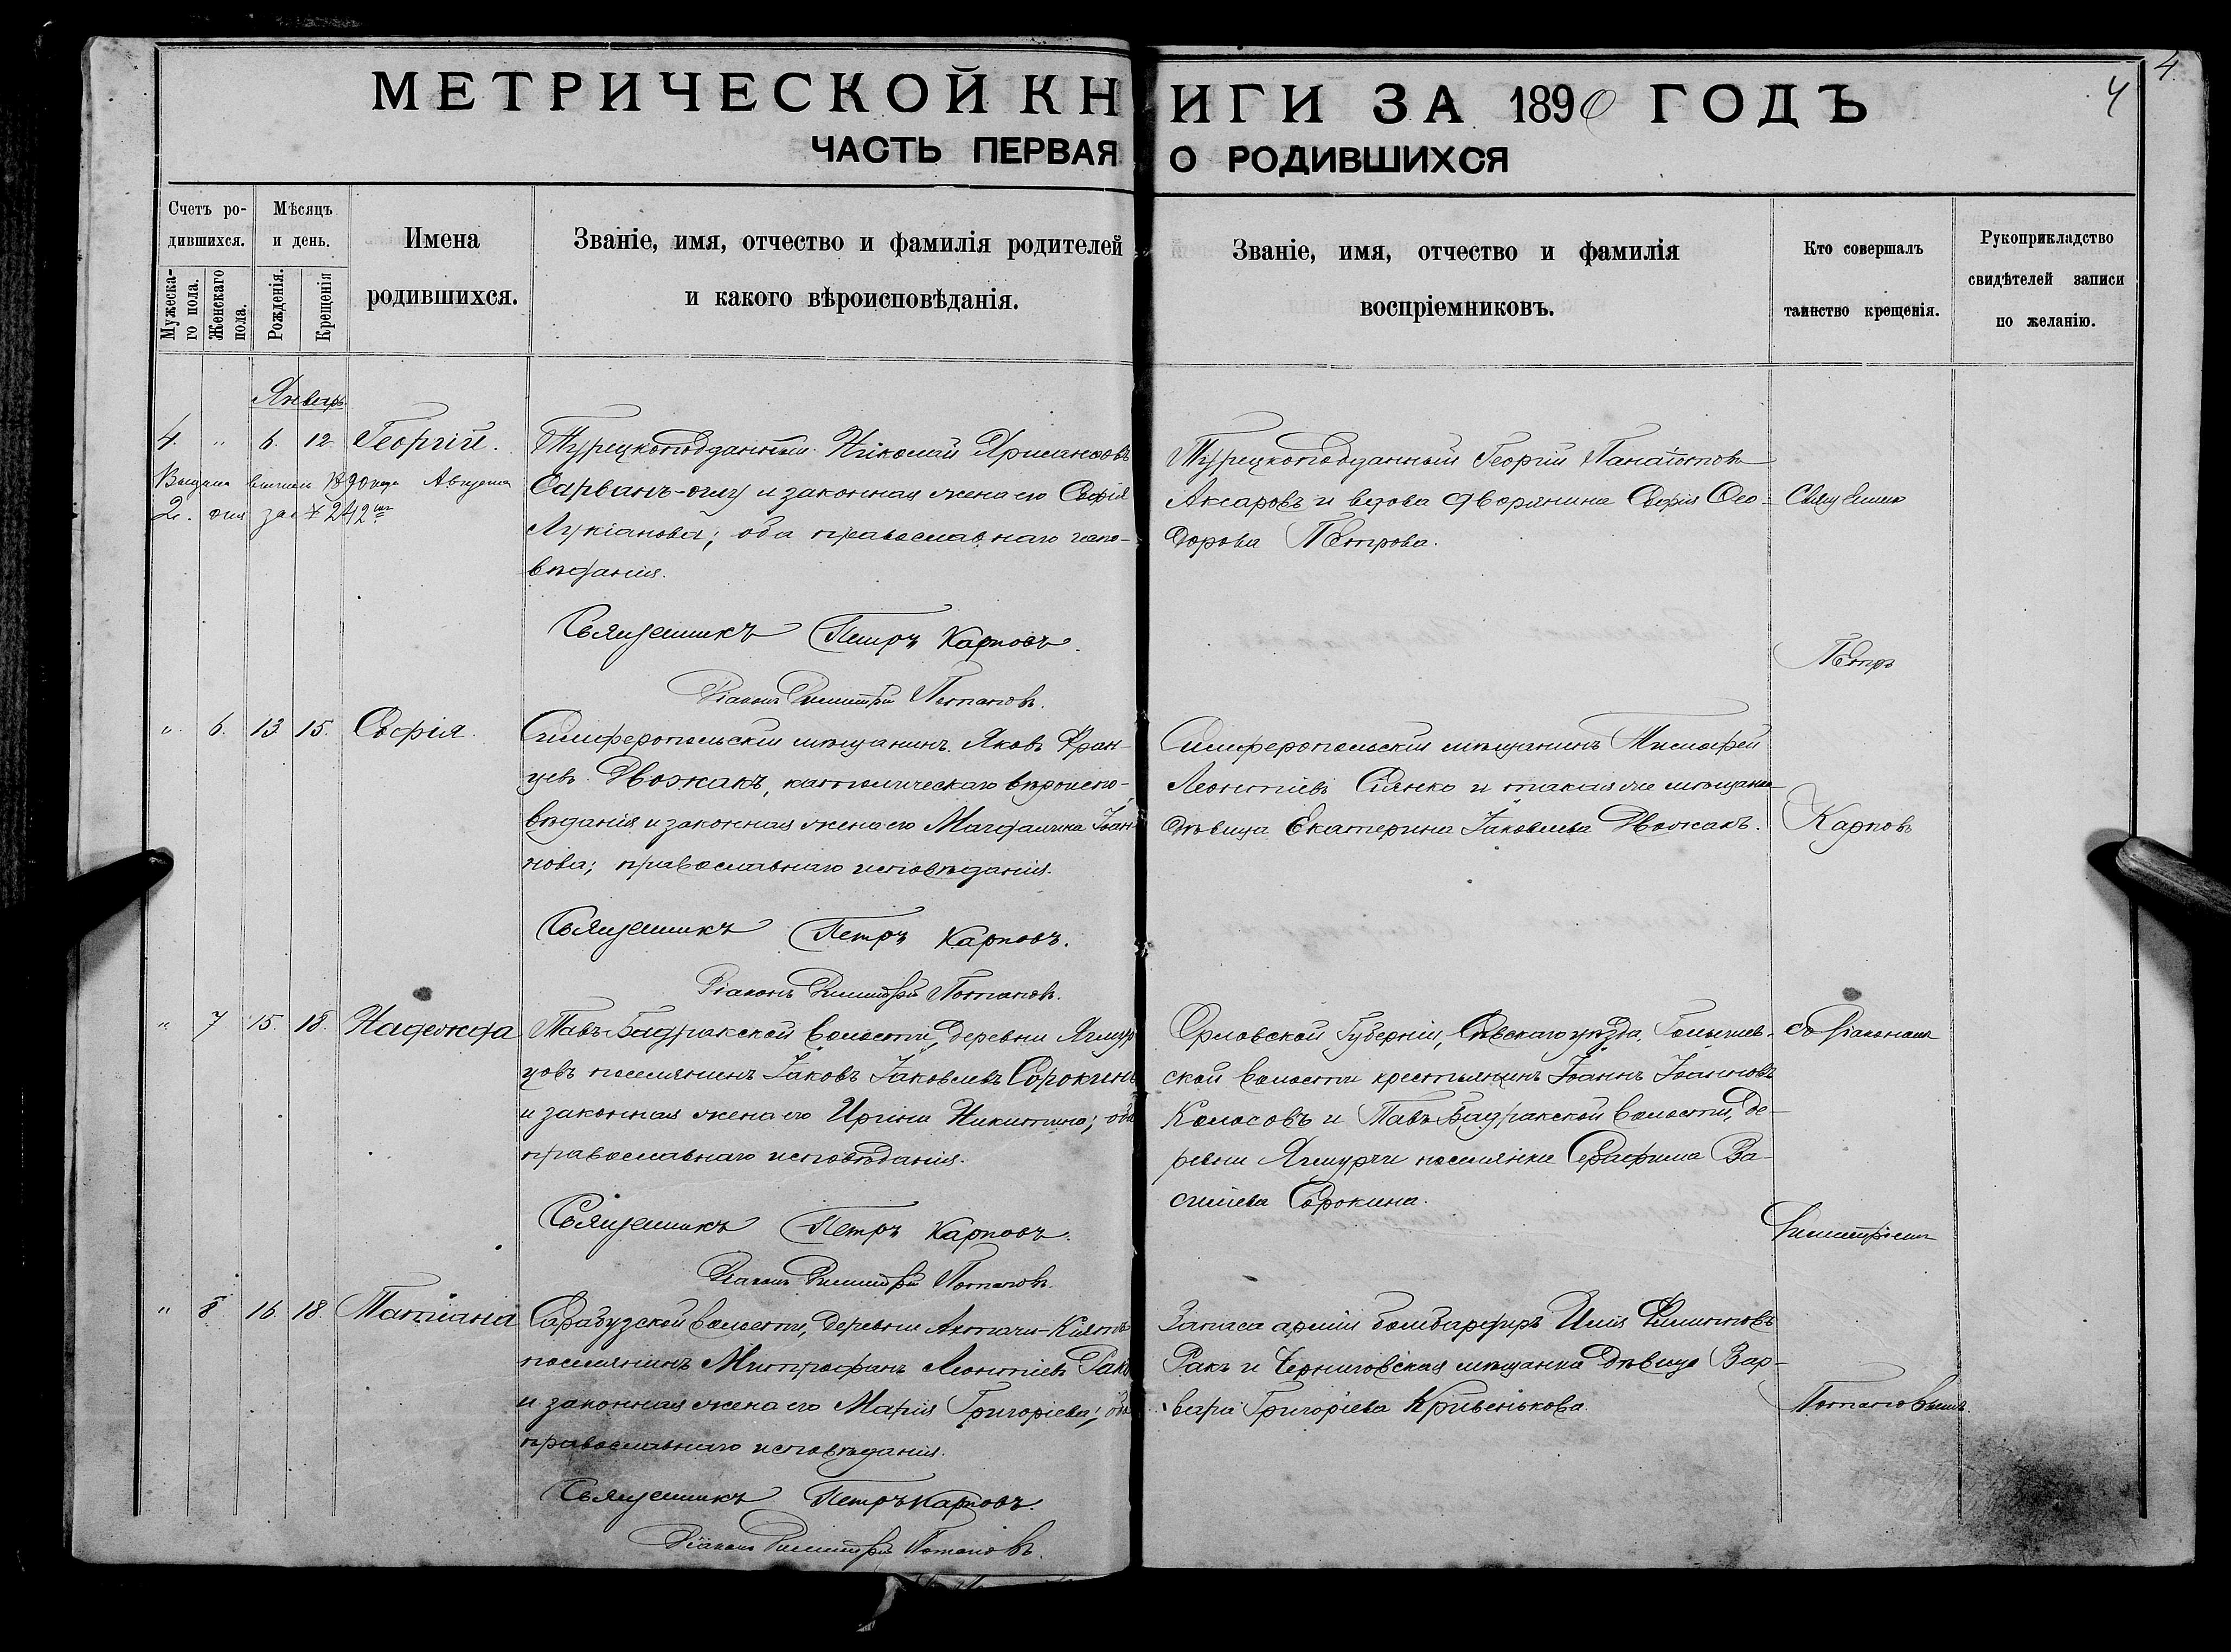 МЕТРИЧЕСКОЙ КНИГИ ЗА 1890 ГОДЪ
4
4.
ЧАСТЬ ПЕРВАЯ О РОДИВШИХСЯ
Счетъ ро-
дившихся.
Мужеска-
го пола.
Женскаго
пола.
Мѣсяцъ
и день.
Рожденія.
Крещенія
Имена
родившихся.
Званіе, имя, отчество и фамилія родителей
и какого вѣроисповѣданія.
Званіе, имя, отчество и фамилія
воспріемниковъ.
Кто совершалъ
таинство крещенія.
Рукоприкладство
свидѣтелей записи
по желанію.
Январь
4. " 6. 12 Георгій.
1890 года Августа
2. дня за № 242
Турецкоподданный Николай
Сарванъ-оглу и законная жена его Софія
Лукіанова; оба православнаго испо-
вѣданія.
Священникъ Петръ Карповъ.
Діаконъ Димитрій Потаповъ.
Турецкоподданный Георгій Панаіотовъ
Аксаровъ и вдова дворянина Софія Ѳео-
дорова Петрова.
Священникъ
Петръ
" 6. 13 15. Софія.
Симферопольскій мѣщанинъ Яковъ Фран-
цевъ Двожакъ, католическаго вѣроиспо-
вѣданія и законная жена его Магдалина Іоан-
нова; православнаго исповѣданія.
Священникъ Петръ Карповъ.
Діаконъ Димитрій Потаповъ.
Симферопольскій мѣщанинъ Тимофей
Леонтіевъ Сіянко и такая же мѣщанка
дѣвица Екатерина Іаковлева Двожакъ.
Карповъ
" 7 15. 18. Надежда
Тавъ-Бадракской волости, деревни
поселянинъ Іаковъ Іаковлевъ Сорокинъ
и законная жена его Ирина Никитина; оба
православнаго исповѣданія.
Священникъ Петръ Карповъ.
Діаконъ Димитрій Потаповъ.
Орловской Губерніи, Сѣвскаго уѣзда,
ской волости крестьянинъ Іоаннъ Іоанновъ
Колосовъ и Тавъ-Бадракской волости, де-
ревни Ягмурчи поселянка Серафима Ва-
силіева Сорокина.
съ діакономъ
Димитріемъ
" 8 16. 18. Татіана
Сарабузской волости, деревни Актачи-Кіятъ
поселянинъ Митрофанъ Леонтіевъ Ракъ
и законная жена его Марія Григоріева; оба
православнаго исповѣданія.
Священникъ Петръ Карповъ.
Діаконъ Димитрій Потаповъ.
Запаса арміи бомбардиръ Илія Филипповъ
Ракъ и Черниговская мѣщанка дѣвица Вар-
вара Григоріева Кривенькова.
Потаповымъ.